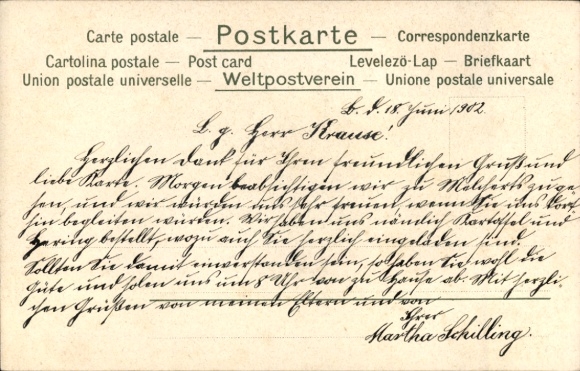 Carte postale — Postkarte — Correspondenzkarte
Cartolina postale — Post card Levelező-Lap — Briefkaart
Union postale universelle — Weltpostverein — Unione postale universale
B. d. 18. Juni 1902.
L. g. Herr Krause!
Herzlichen Dank für Ihren freundlichen Gruß und
liebe Karte. Morgen beabsichtigen wir zu Melcherts zu ge-
hen, und wir würden uns sehr freuen wenn Sie uns dort
hin begleiten würden. Wir haben uns nämlich Kartoffel und
Hering bestellt, wozu auch Sie herzlich eingeladen sind.
Sollten Sie damit einverstanden sein, so haben Sie wohl die
Güte und holen uns um 8 Uhr von zu Hause ab. Mit herzli-
chen Grüßen von meinen Eltern und von
Ihrer
Martha Schilling.